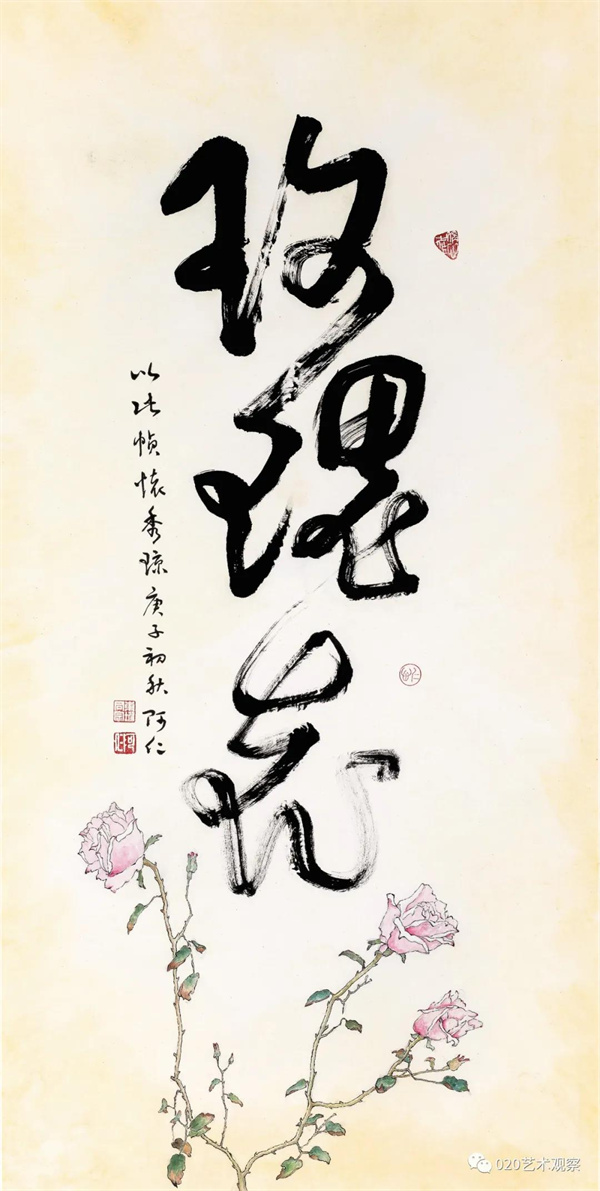 玫瑰花
以此幀懷秀琼庚子初秋阿仁
020艺术观察